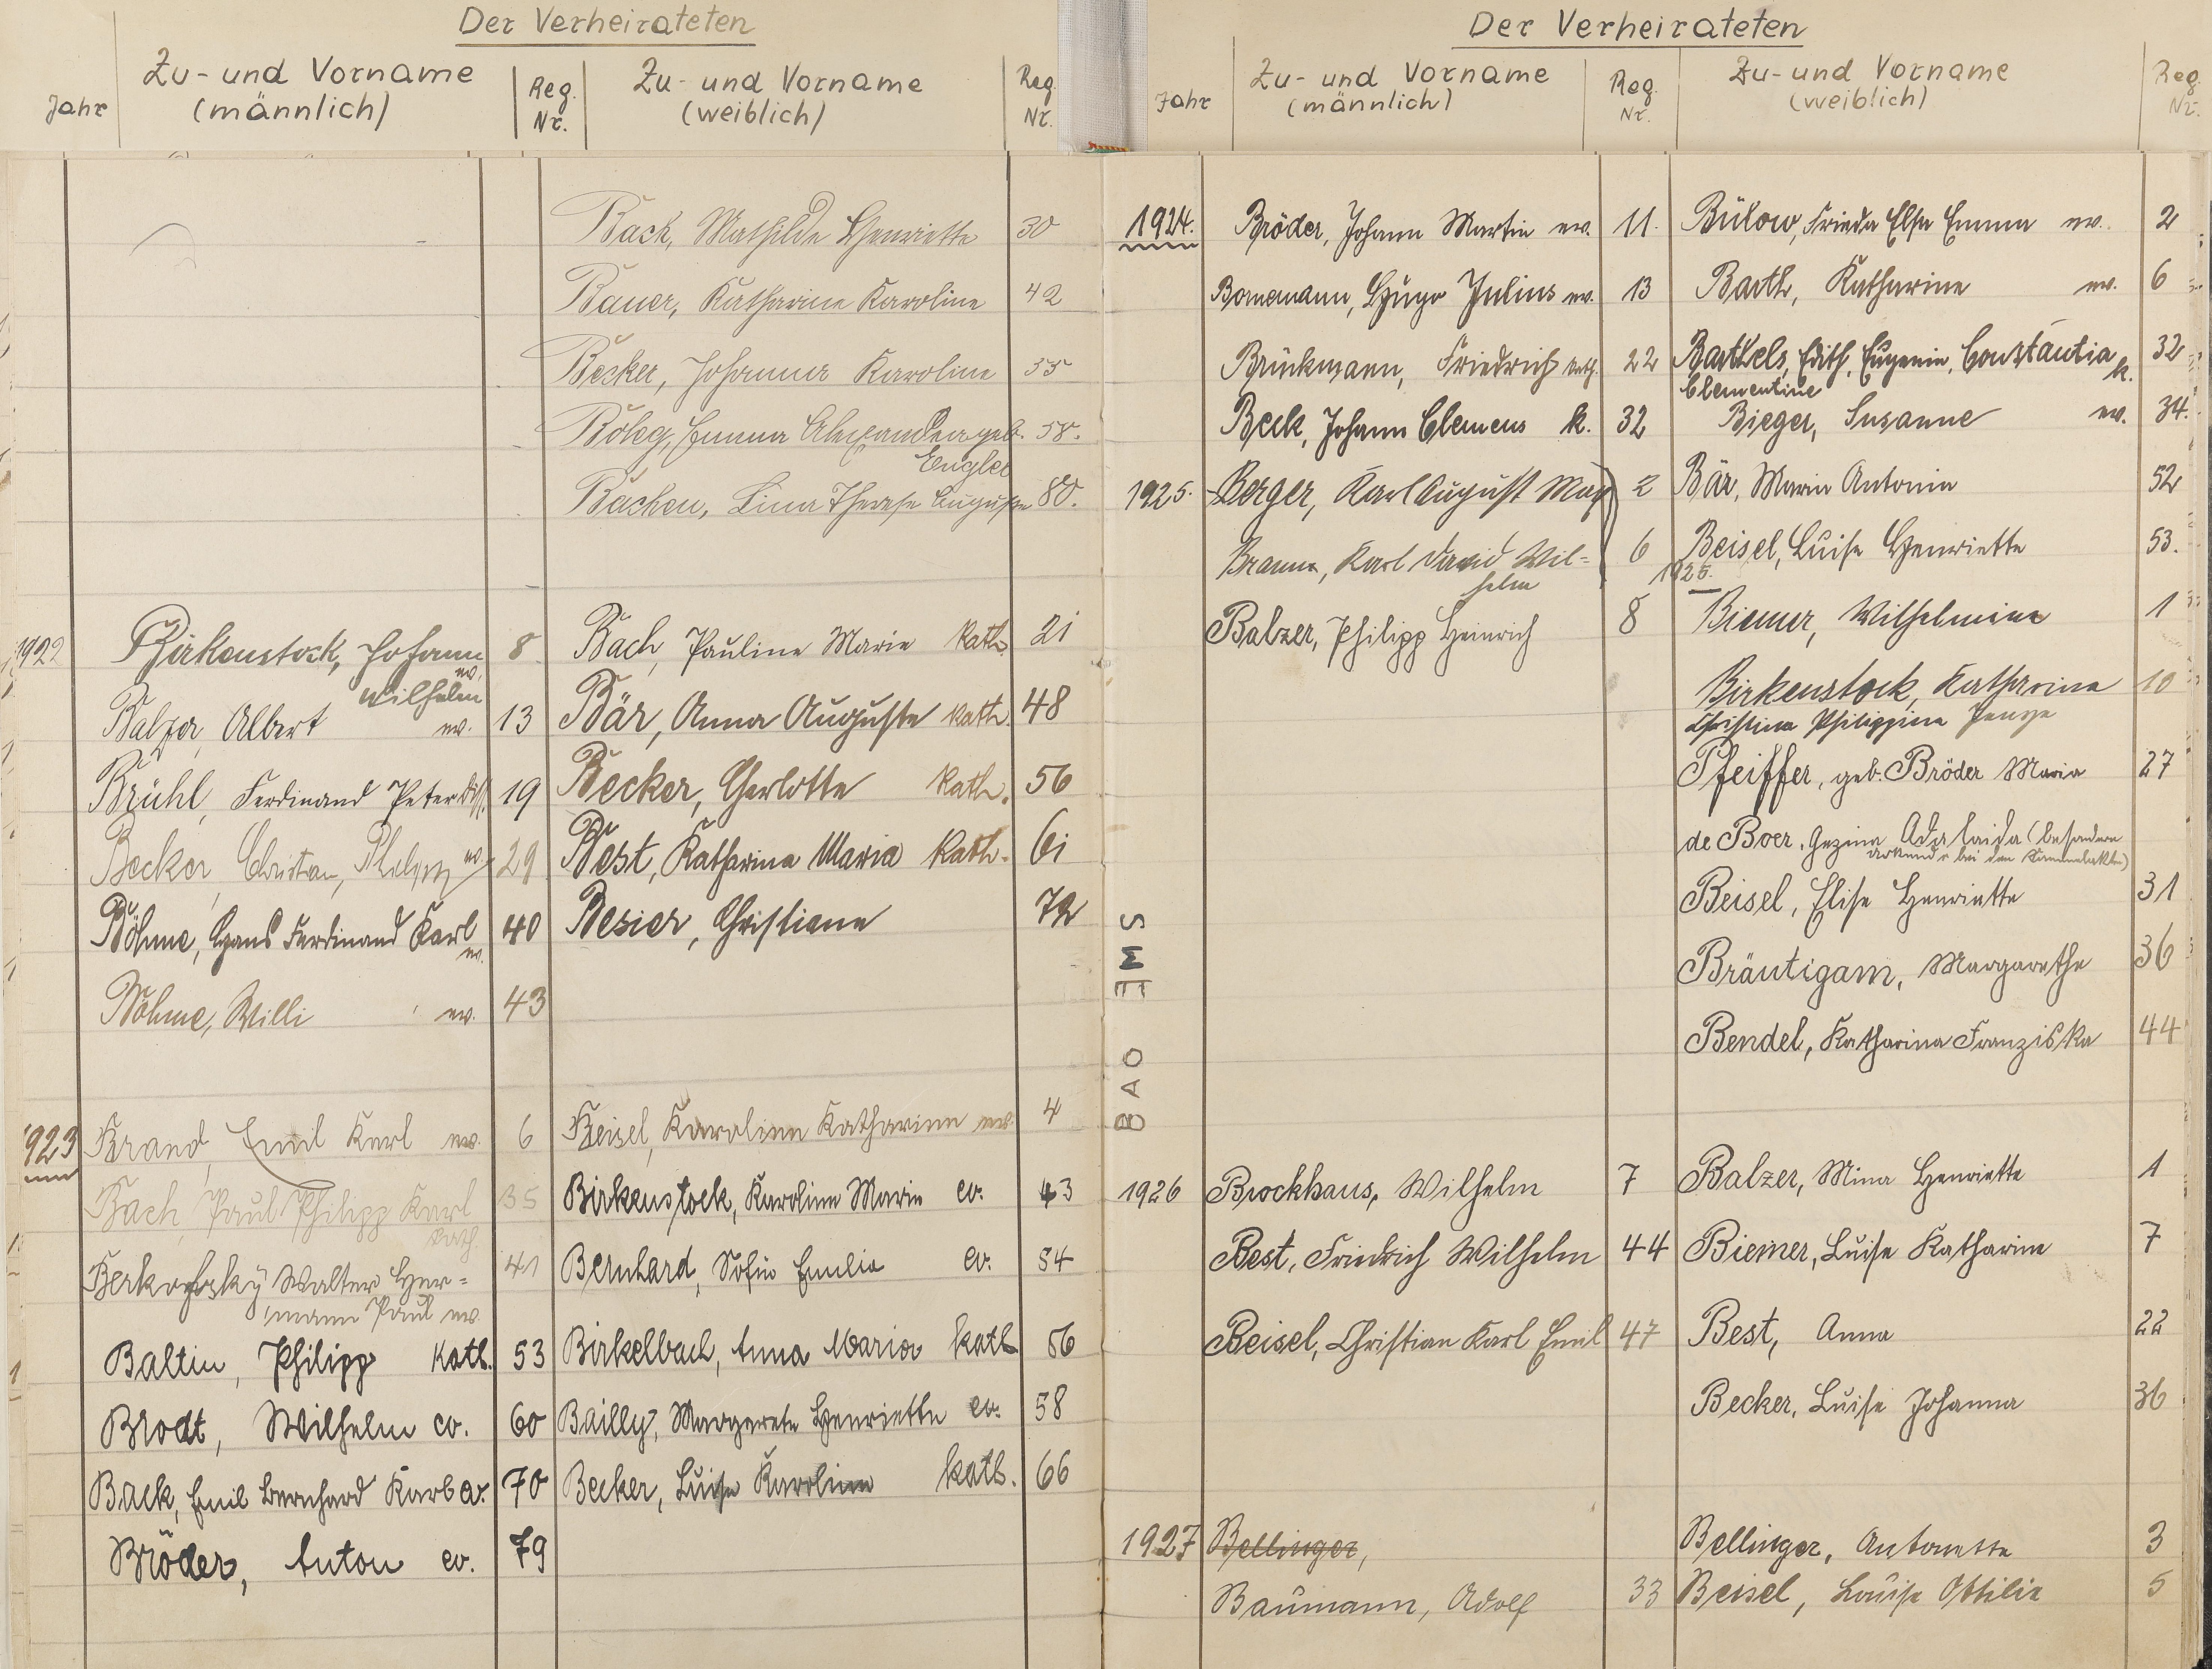 Der Verheirateten
Jahr
Zu- und Vorname
(männlich)
Reg.
Nr.
Zu- und Vorname
(weiblich)
Reg.
Nr.
Bach, Mathilde Henriette 30
Bauer, Katharine Karoline 42
Becker, Johanna Karoline 55
Emma Alexandra geb. 58.
Engler
Bachen, Lina Therese Auguste 80.
1922 Birkenstock, Johann 8 Bach, Pauline Marie kath. 21
ev.
Wilhelm
Balzer, Albert ev. 13 Bär, Anna Auguste kath. 48
Brühl, Ferdinand Peter diss. 19 Becker, Charlotte kath. 56
Becker, Christian, Philipp ev. 29 Best, Katharina Maria kath. 61
Böhme, Hans Ferdinand Karl 40 Besier, Christiane 72
ev.
Böhme, Willi ev. 43
1923 Brand, Emil Karl ev. 6 Beisel, Karoline Katharine ev. 4
Bach, Paul Philipp Karl 35 Birkenstock, Karoline Marie ev. 43
kath.
Walter Her= 41 Bernhard, Sofie Emilie ev. 54
mann Paul ev.
Baltin, Philipp kath. 53 Birkelbach, Anna Maria kath 56
Brodt, Wilhelm ev. 60 Bailly, Margarete Henriette ev. 58
Back, Emil Bernhard Karl ev. 70 Becker, Luise Karoline kath. 66
Bröder, Anton ev. 79
Der Verheirateten
Jahr
Zu- und Vorname
(männlich)
Reg.
Nr.
Zu- und Vorname
(weiblich)
Reg.
Nr.
1924. Bröder, Johann Martin ev. 11. Bülow, Frieda Elsa Emma ev. 2
Bornemann, Hugo Julius ev. 13 Barth, Katharine ev. 6
Brückmann, Friedrich kath. 22 Barthels, Edith, Eugenie, Constantia 32
k.
Clementine
Beck, Johann Clemens k. 32 Bieger, Susanne ev. 34.
1925. Berger, Karl August Max 2 Bär, Maria Antonia 52
Braun, Karl David Wil= 6 Beisel, Luise Henriette 53.
helm
1925.
Balzer, Philipp Heinrich 8 Biemer, Wilhelmine 1
Birkenstock, Katharina 10
Christina Philippina
Pfeiffer, geb. Bröder Maria 27
de Boer, Gezina Adelaida (besondere
Urkunde bei den Sammelakten)
Beisel, Elise Henriette 31
Bräutigam, Margarethe 36
Bendel, Katharina Franziska 44
BAD EMS
1926 Brockhaus, Wilhelm 7 Balzer, Mina Henriette 1
Best, Friedrich Wilhelm 44 Biemer, Luise Katharine 7
Beisel, Christian Karl Emil 47 Best, Anna 22
Becker, Luise Johanna 36
1927 Bellinger, Bellinger, Antonette 3
Baumann, Adolf 33 Beisel, Louise Ottilie 5